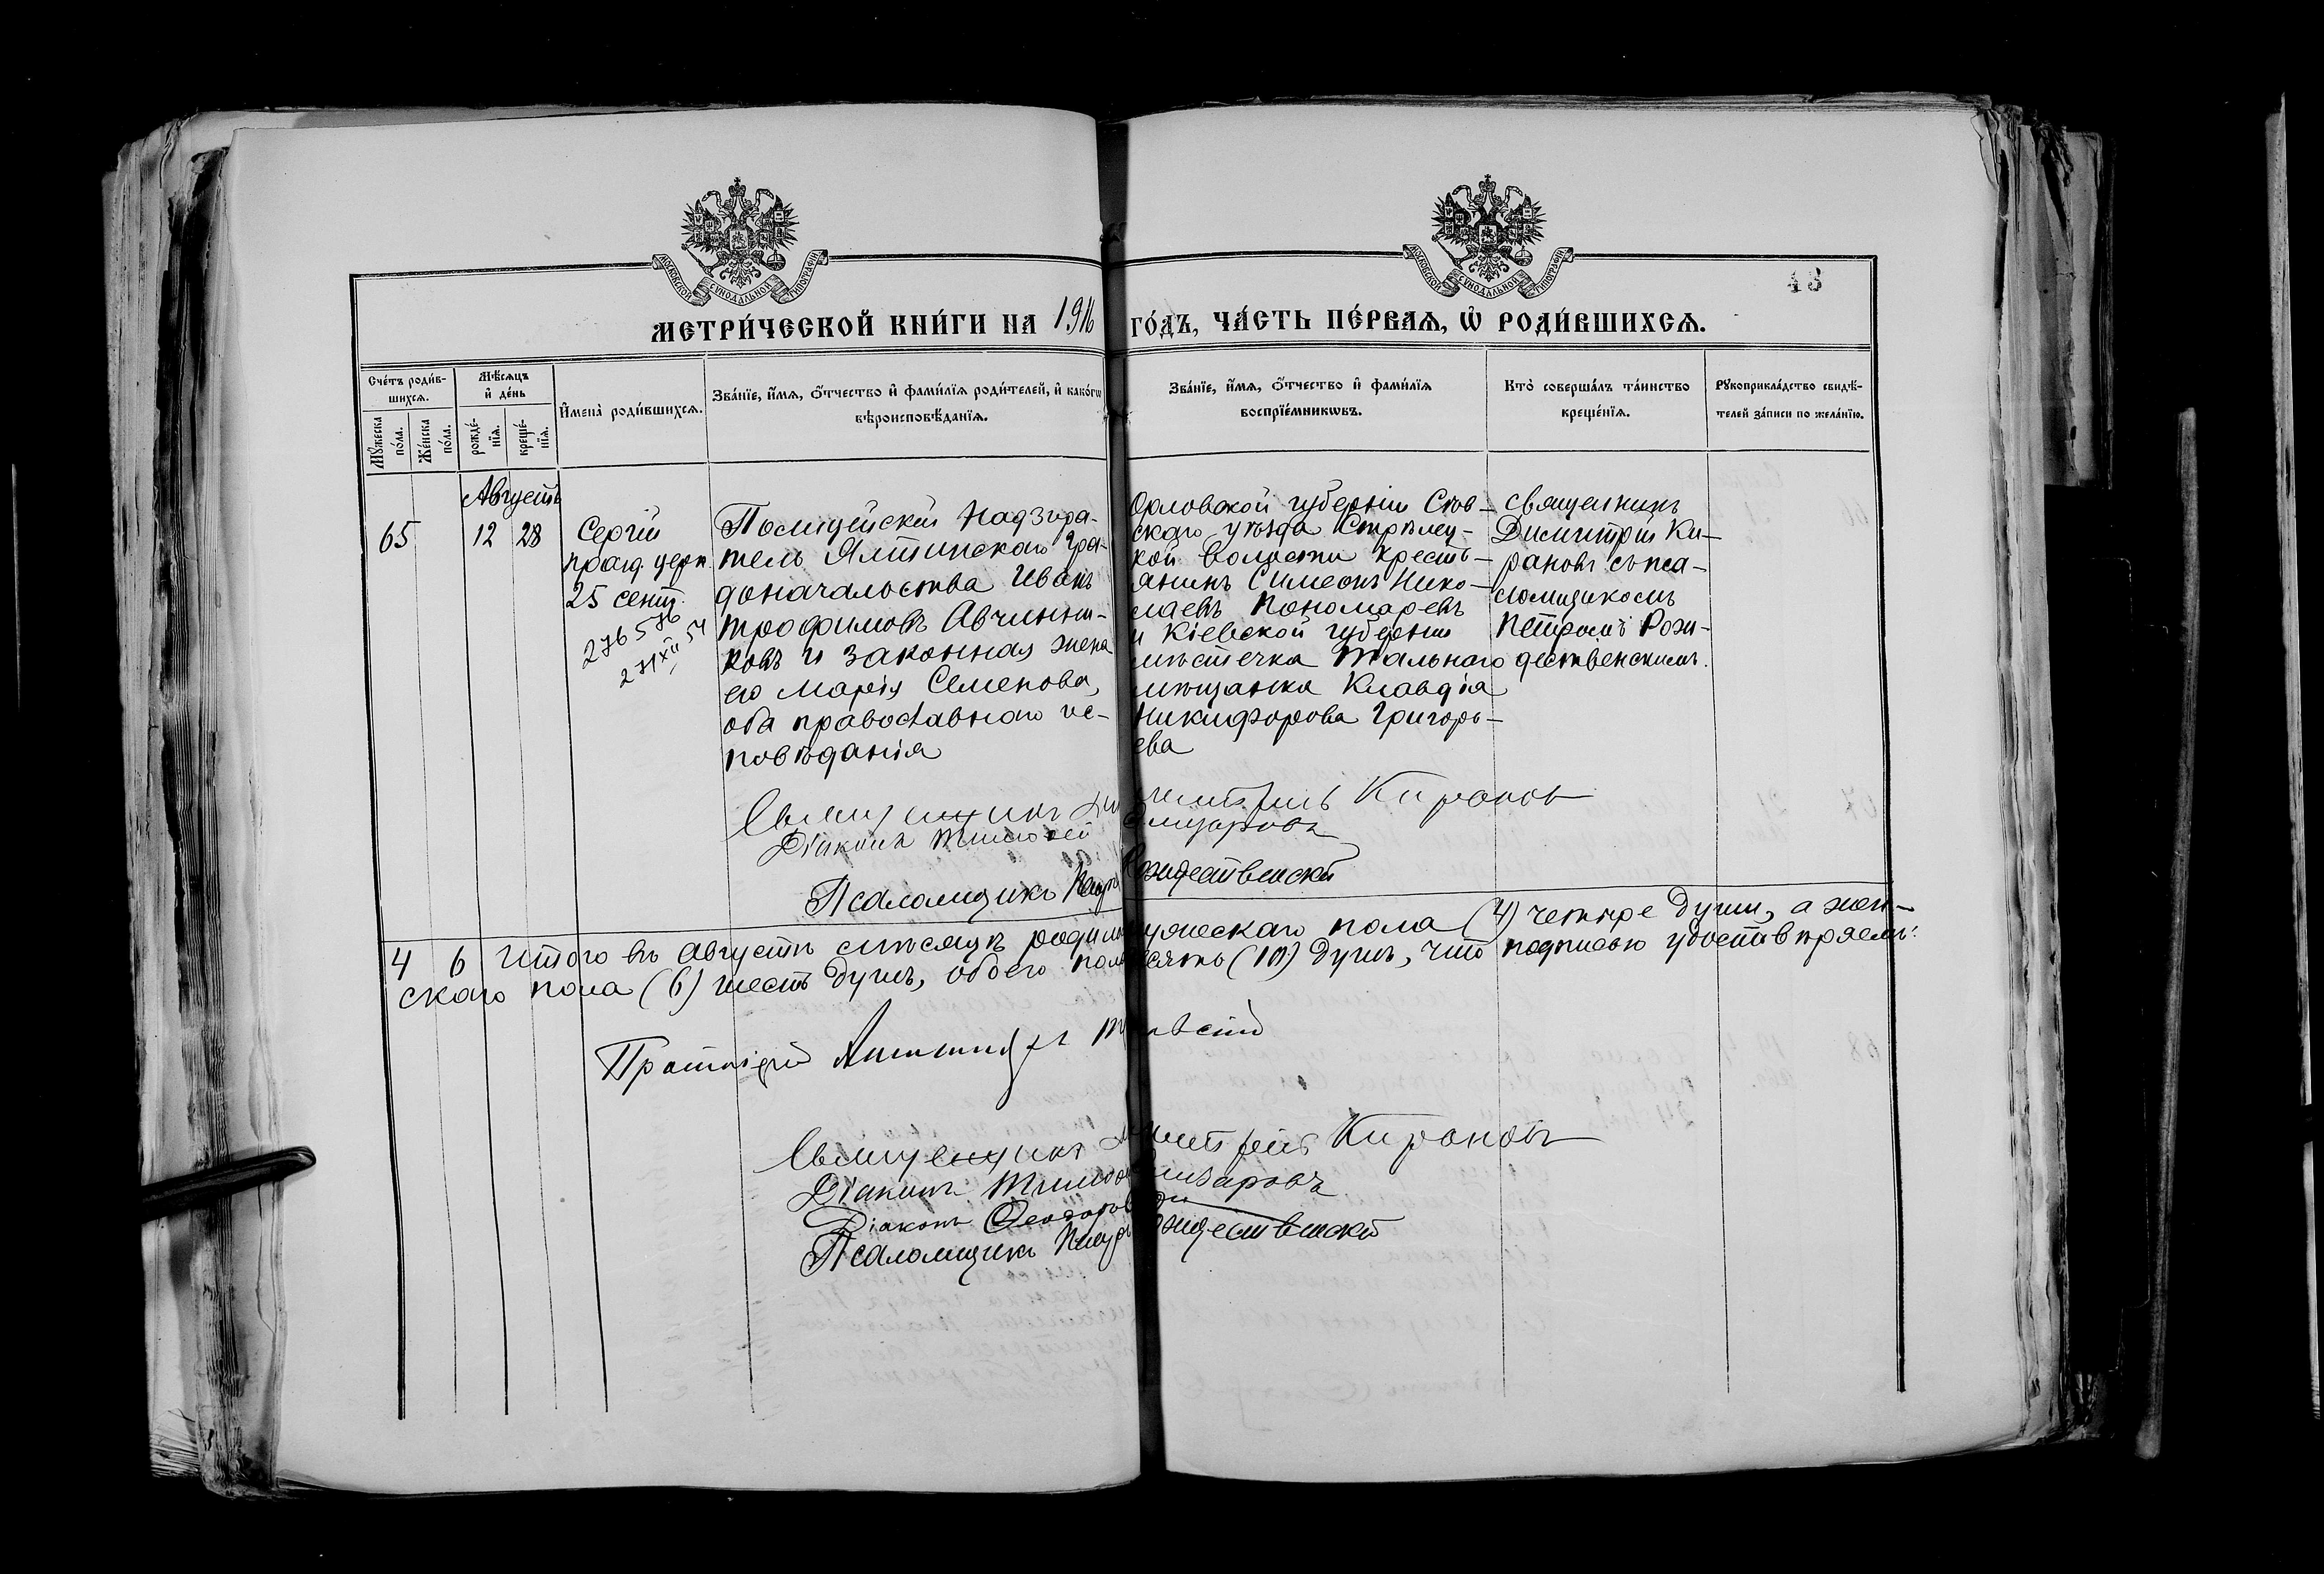 МОСКОВСКОЙ СѴНОДАЛЬНОЙ ТИПОГРАФІИ
МОСКОВСКОЙ СѴНОДАЛЬНОЙ ТИПОГРАФІИ
43
МЕТРИ́ЧЕСКОЙ КНИ́ГИ НА 1916 ГО́ДЪ, ЧА́СТЬ ПЕ́РВАЯ, Ѡ РОДИ́ВШИХСЯ.
Сче́тъ роди́в-
шихся.
Мꙋ́жеска
по́ла.
Же́нска
по́ла.
Мѣ́сяцъ
и҆ де́нь
рожде́-
нїя.
креще́-
нїя.
И҆мена̀ роди́вшихся.
Зва́нїе, и҆́мя, ѻ҆́тчество и҆ фами́лїя роди́телей, и҆ како́гѡ
вѣроисповѣ́данїя.
Зва́нїе, и҆́мя, ѻ҆́тчество и҆ фами́лїя
воспрїе́мникѡвъ.
Кто̀ соверша́лъ та́инство
креще́нїя.
Рꙋкоприкла́дство свидѣ́-
телей за́писи по жела́нїю.
Августъ
65
12 28
Сергій
празд. церк.
25 сент.
276576
27/XII 54
Полицейскій Надзира-
тель Ялтинскаго Гра-
доначальства Иванъ
Трофимовъ Авчинни-
ковъ и законная жена
его Марія Семенова,
оба православнаго ис-
повѣданія
Орловской губерніи Сѣв-
скаго уѣзда Стрѣлец-
кой волости кресть-
янинъ Симеонъ Нико-
лаевъ Пономаревъ
и Кіевской губерніи
мѣстечка Тальнаго
мѣщанка Клавдія
Никифорова Григорь-
ева
Священникъ
Димитрій Ки-
рановъ съ пса-
ломщикомъ
Петромъ Рож-
дественскимъ.
Священникъ Димитрій Кирановъ
Діаконъ Тимоѳей
Псаломщикъ Петръ Рождественскій
4 6 Итого въ августѣ мѣсяцѣ родил мужескаго пола (4) четыре души, а жен-
скаго пола (6) шесть душъ, обоего пола десять (10) душъ, что подписью удостовѣряемъ:
Протоіерей
Священникъ Димитрій Кирановъ
Діаконъ Тимоѳей
Діаконъ
Псаломщикъ Петръ Рождественскій